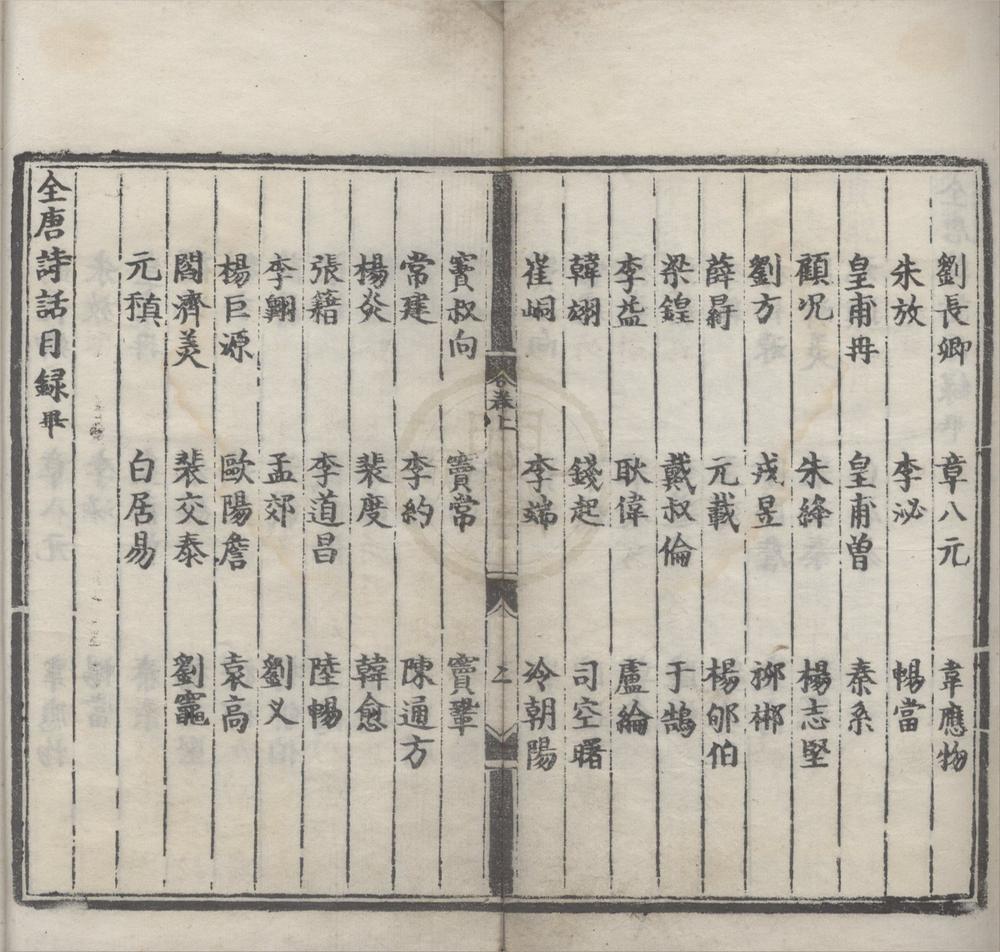 劉長卿 章八元 韋應物
朱放 李泌 暢當
皇甫冉 皇甫曾 秦系
顧況 朱絳 楊志堅
劉方 戎昱 柳郴
薛㝷 元載 楊郇伯
梁鍠 戴叔倫 于鵠
李益 耿偉 盧綸
韓翃 錢起 司空曙
崔峒 李端 冷朝陽
卷上
二
竇叔向 竇常 竇鞏
常建 李約 陳通方
楊炎 裴度 韓愈
張籍 李道昌 陸暢
李翱 孟郊 劉乂
楊巨源 歐陽詹 袁高
閻濟美 裴交泰 劉竈
元稹 白居易
全唐詩話目録畢